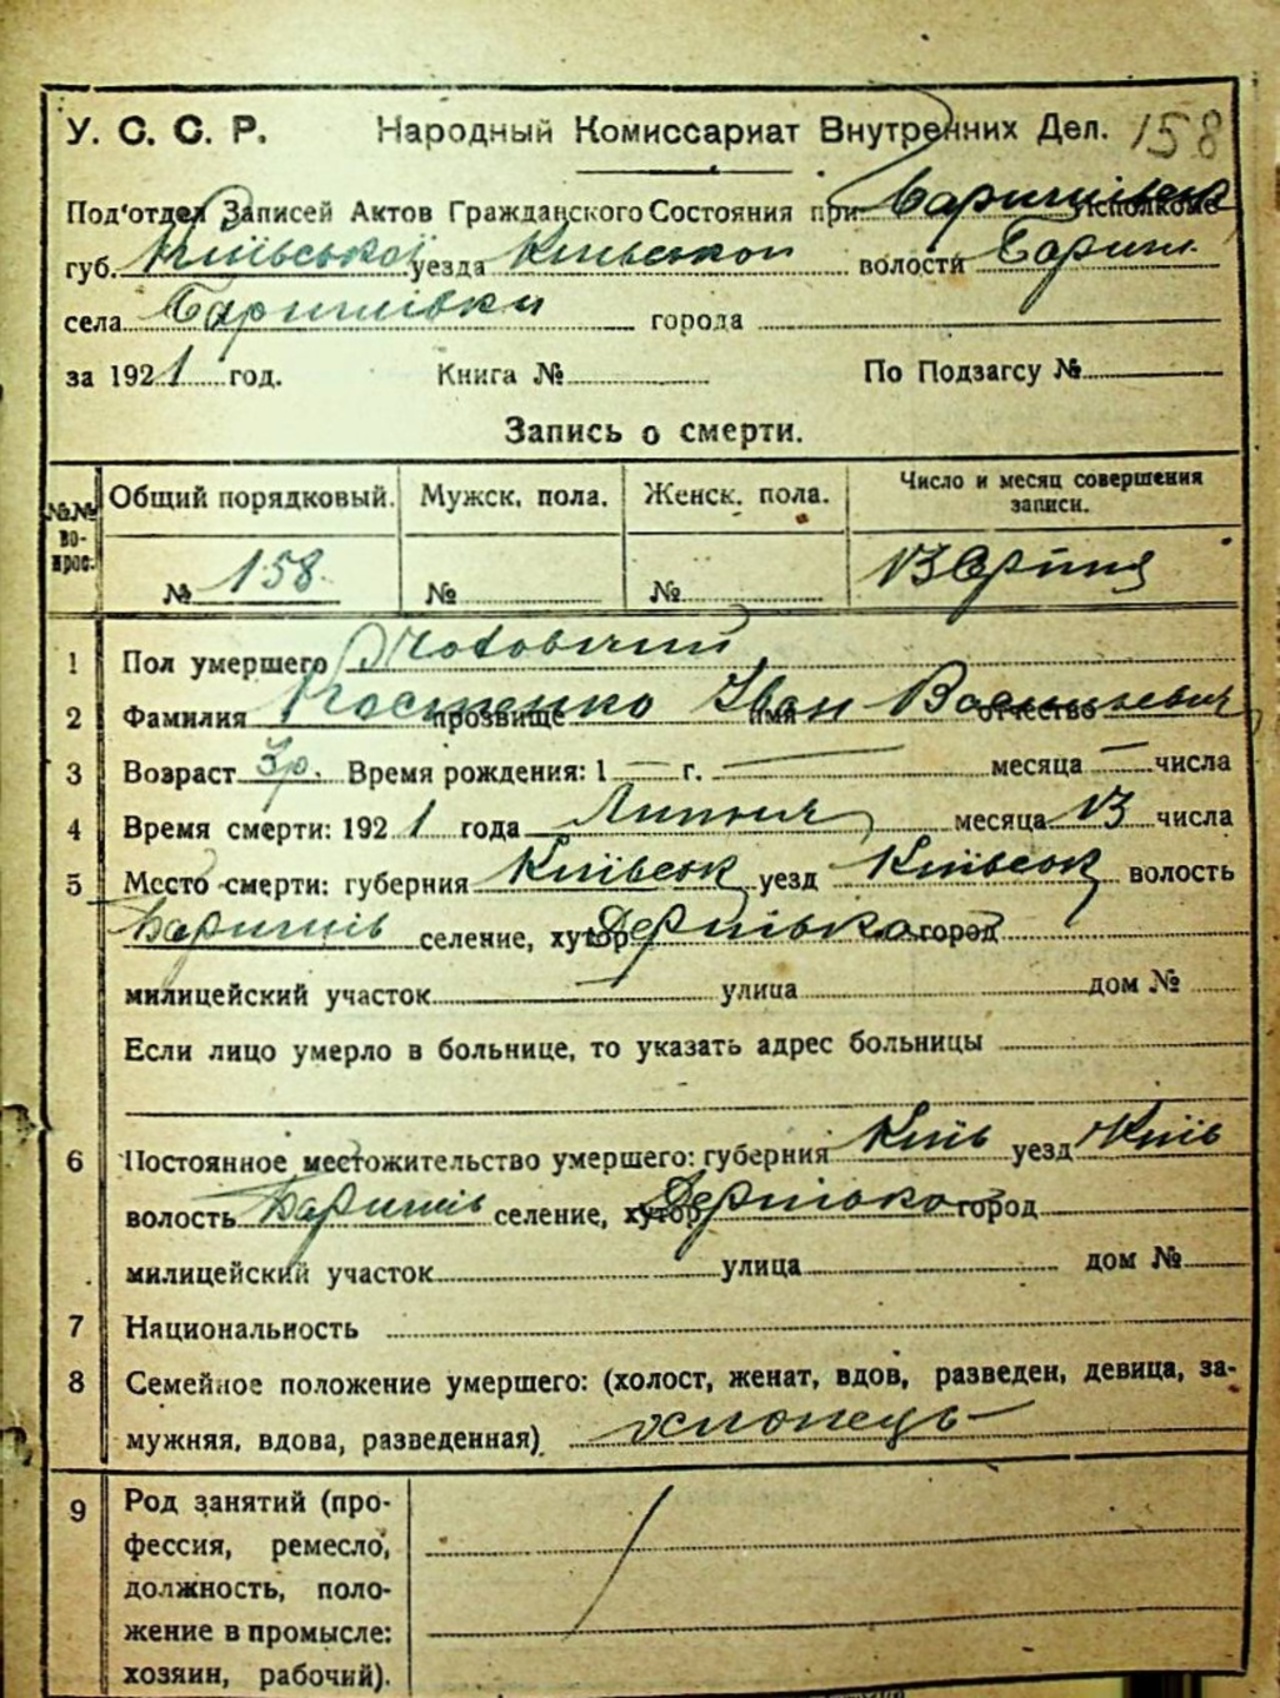 У. С. С. Р. Народный Комиссариат Внутренних Дел. 158
Под'отдел Записей Актов Гражданского Состояния при Исполкоме
губ. Київської уезда Київської волости Бариш.
села Баришівки города
за 1921 год. Книга № По Подзагсу №
Запись о смерти.
№№ вопрос. Общий порядковый. Мужск. пола. Женск. пола. Число и месяц совершения записи.
№ 158 № №
1 Пол умершего Чоловічий
2 Фамилия прозвище Костенко имя Іван отчество Васильевич
3 Возраст 3р. Время рождения: 1 — г. — месяца — числа
4 Время смерти: 1921 года Липня месяца 13 числа
5 Место смерти: губерния Київськ уезд Київськ волость
Баришів селение, хутор город
милицейский участок улица дом №
Если лицо умерло в больнице, то указать адрес больницы
6 Постоянное местожительство умершего: губерния Київ уезд Київ
волость Баришів селение, хутор город
милицейский участок улица дом №
7 Национальность
8 Семейное положение умершего: (холост, женат, вдов, разведен, девица, за-
мужняя, вдова, разведенная) хлопець
9 Род занятий (про-
фессия, ремесло,
должность, поло-
жение в промысле:
хозяин, рабочий).